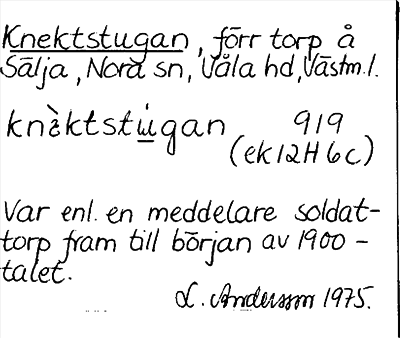 Knektstugan, förr torp å
Sälja, Nora sn, Våla hd, Västm.l.
knèktstu̇gan 919
(ek 12H 6c)
Var enl. en meddelare soldat-
torp fram till början av 1900-
talet.
L. Andersson 1975.